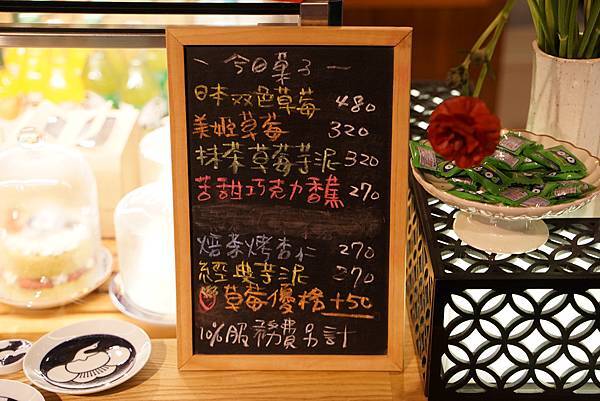 今日菓子
日本双色草莓 480
美姬草莓 320
抹茶草莓芋泥 320
苦甜巧克力香蕉 270
焙茶烤杏仁 270
經典芋泥 270
草莓優格 +50
10%服務費另計